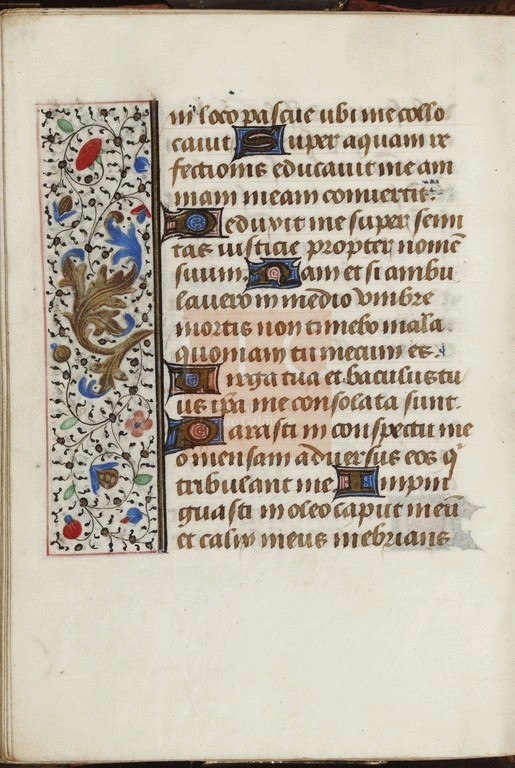 in loco pascue ubi me collo
cavit Super aquam re
fectionis educavit me am
mam meam convertit.
Deduxit me super semi
tas iusticie propter nomē
suum. Nam et si ambu
lavero in medio umbre
mortis non timebo mala
quoniam tu mecum es.
Virga tua et baculus tu
us ipa me consolata sunt.
Parasti in conspectu me
o mensam adversus eos q
tribulant me Impin
guasti in oleo caput meū
et calix meus inebrians